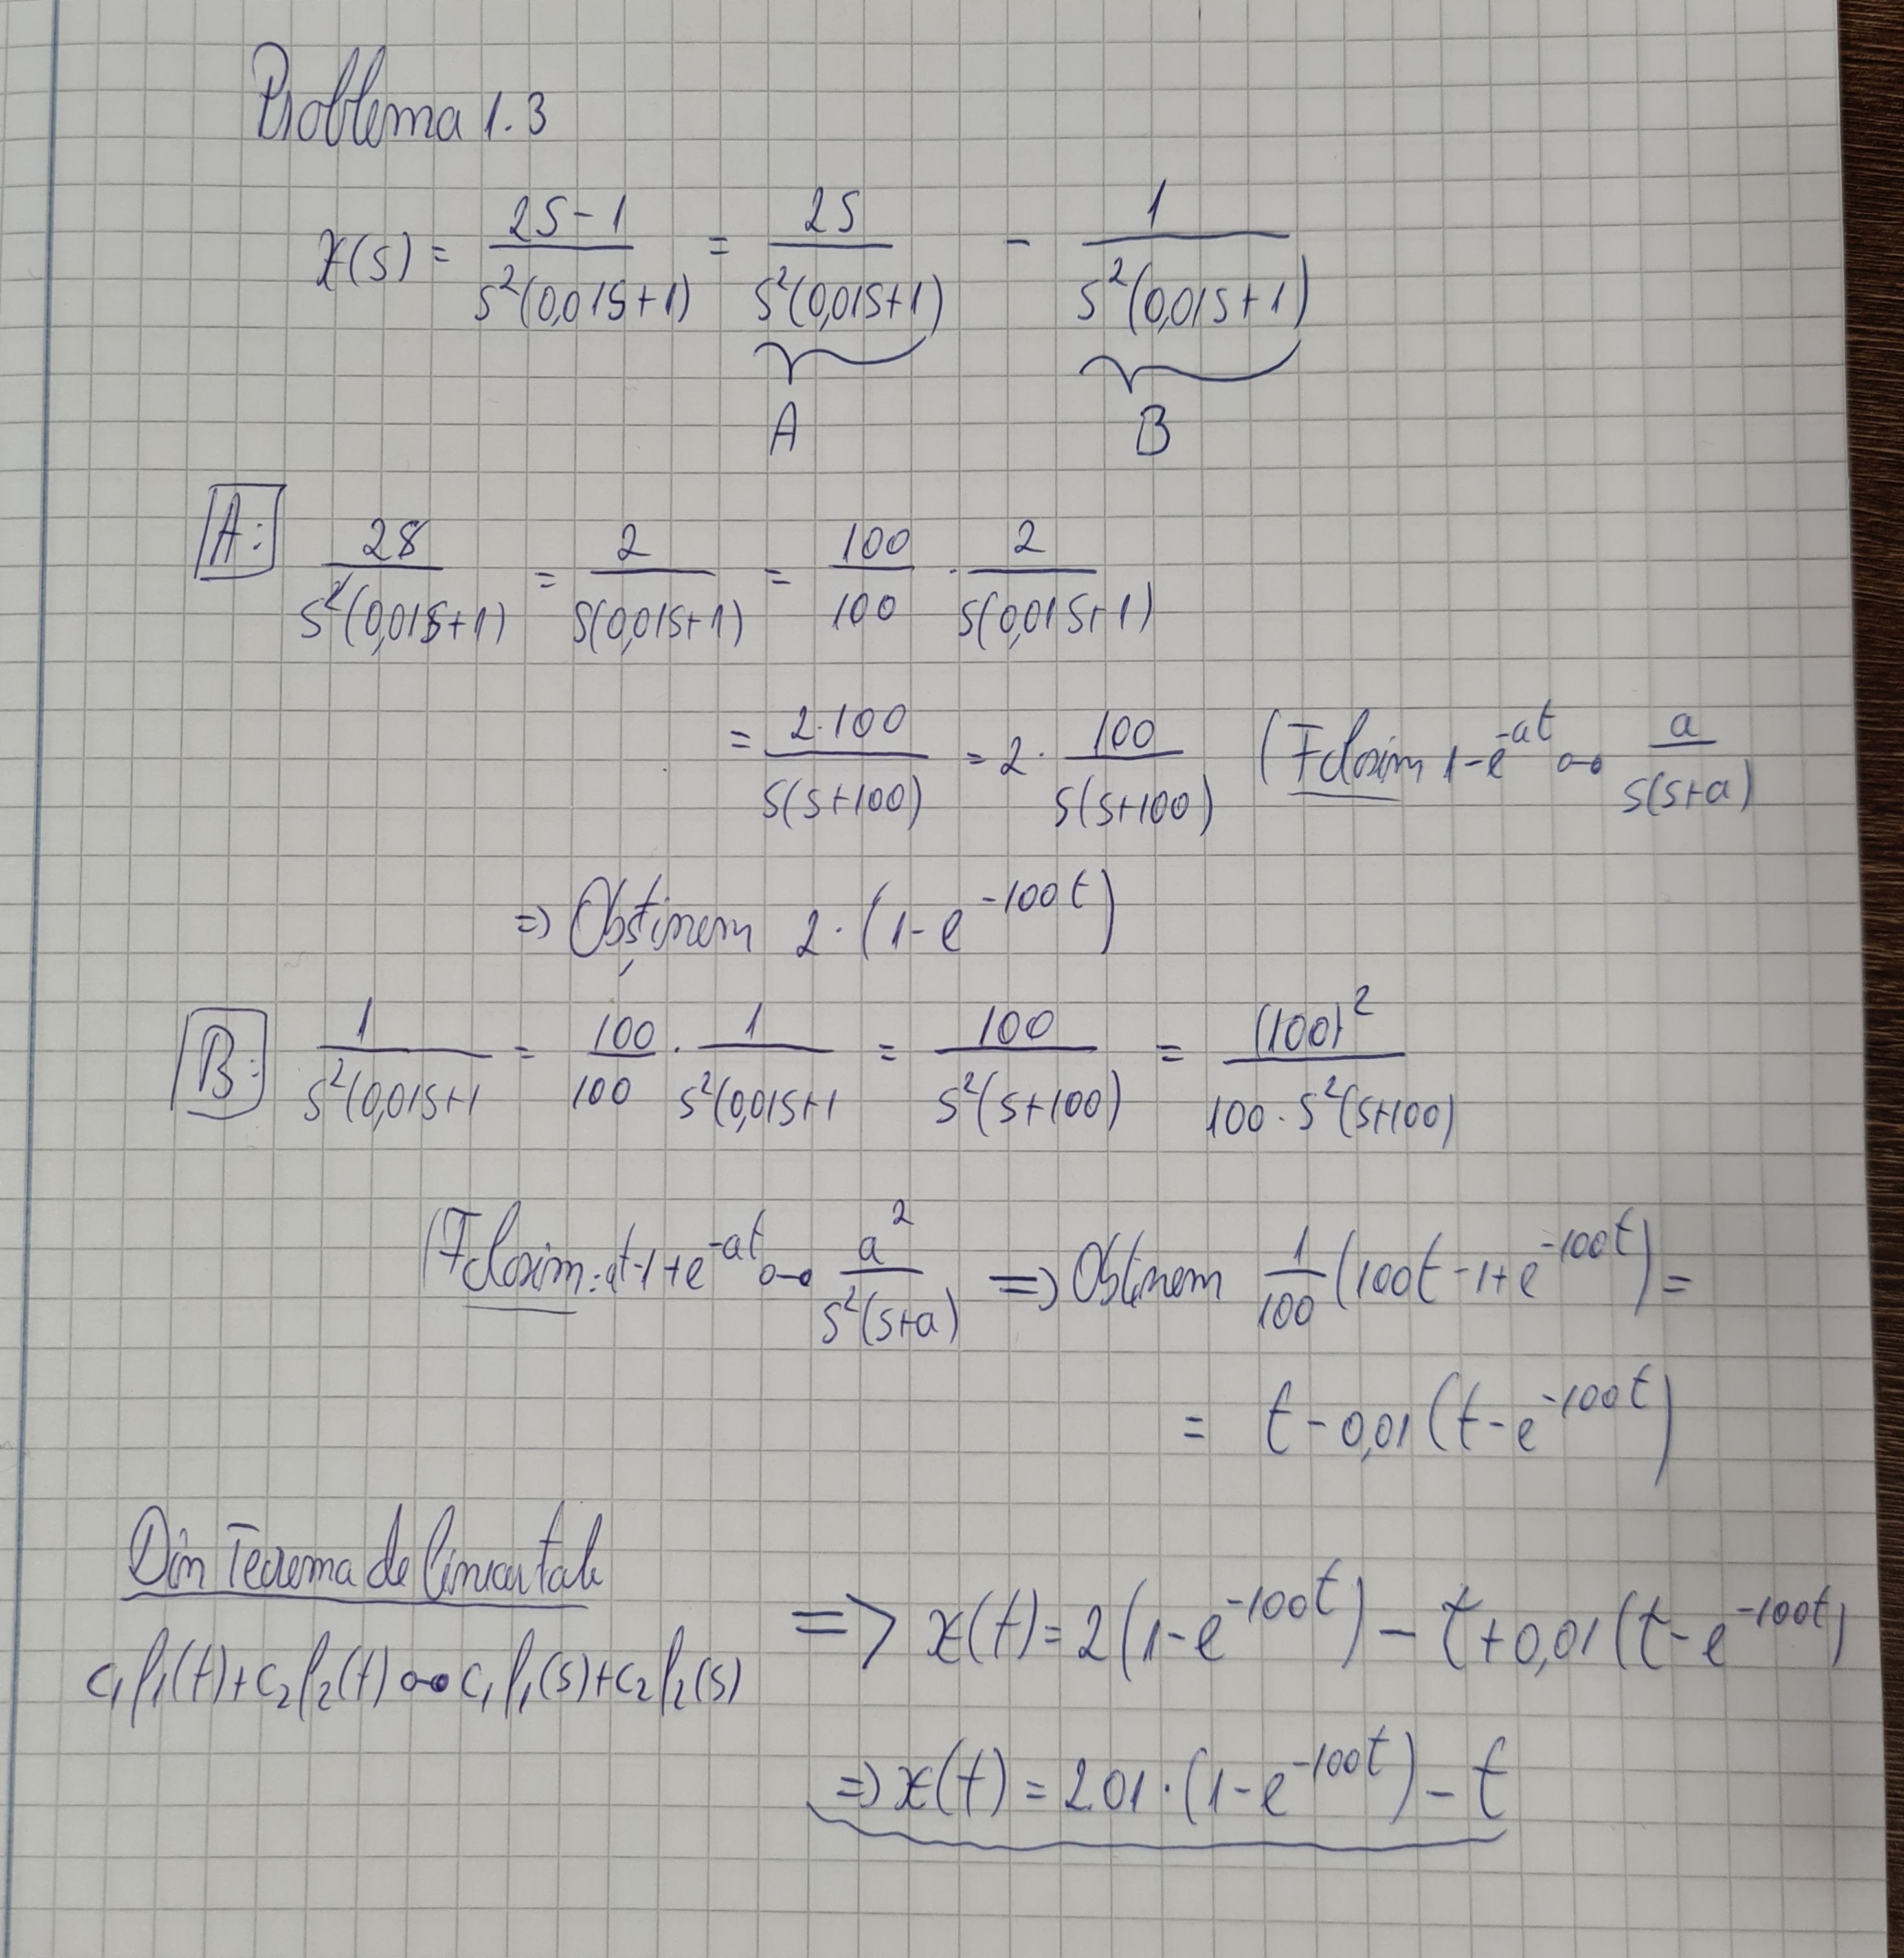 Problema 1.3
X(s) = (2s-1)/(s²(0,01s+1)) = 2s/(s²(0,01s+1)) - 1/(s²(0,01s+1))
A B
A: 2s/(s²(0,01s+1)) = 2/(s(0,01s+1)) = 100/100 · 2/(s(0,01s+1))
= 2·100/(s(s+100)) = 2· 100/(s(s+100)) (Folosim 1-e^-at o-• a/(s(s+a))
=> Obținem 2·(1-e^-100t)
B: 1/(s²(0,01s+1 = 100/100 · 1/(s²(0,01s+1 = 100/(s²(s+100)) = (100)²/(100·s²(s+100))
(Folosim: at-1+e^-at o-• a²/(s²(s+a)) => Obținem 1/100 (100t-1+e^-100t) =
= t - 0,01(t-e^-100t)
Din Teorema de liniaritate
c₁f₁(t)+c₂f₂(t) o-• c₁f₁(s)+c₂f₂(s)
=> x(t) = 2(1-e^-100t) - t + 0,01(t-e^-100t)
=> x(t) = 2.01·(1-e^-100t) - t